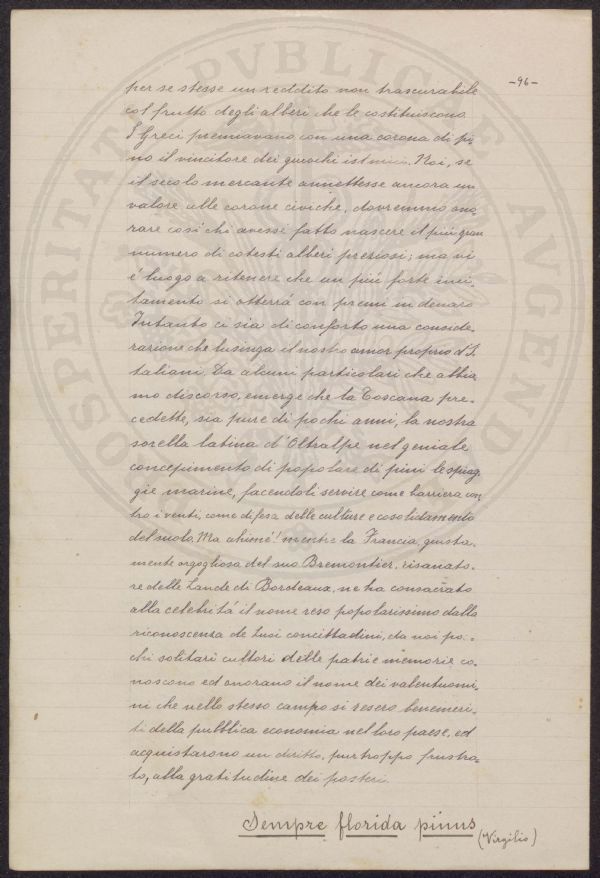 -96-
per se stesse un reddito non trascurabile
col frutto degli alberi che le costituiscono.
I Greci premiavano con una corona di pi,
no il vincitore dei giuochi istmici. Noi, se
il secolo mercante annettesse ancora un
valore alle corone civiche, dovremmo ono,
rare così chi avesse fatto nascere il più gran
numero di cotesti alberi preziosi; ma vi
é luogo a ritenere che un più forte inci,
tamento si otterrà con premi in denaro
Intanto ci sia di conforto una conside,
razione che lusinga il nostro amor proprio d'I,
taliani. Da alcuni particolari che abbia
mo discorso, emerge che la Toscana pre,
cedette, sia pure di pochi anni, la nostra
sorella latina d'Oltralpe nel geniale
concepimento di popolare di pini le spiag,
gie marine, facendoli servire come barriera con
tro i venti, come difesa delle culture e cosolidamento
del suolo. Ma ahimé! mentre la Francia, giusta,
mente orgogliosa del suo Bremontier, risanato,
re delle Lande di Bordeaux, ne ha consacrato
alla celebrità il nome reso popolarissimo dalla
riconoscenza de' suoi concittadini, da noi po,
chi solitari cultori delle patrie memorie co,
noscono ed onorano il nome dei valentuomi,
ni che nello stesso campo si resero benemeri,
ti della pubblica economia nel loro paese, ed
acquistarono un diritto, purtroppo frustra,
to, alla gratitudine dei posteri.
Sempre florida pinus
(Virgilio)
PVBLICAE
PROSPERITATI
AVGENDAE